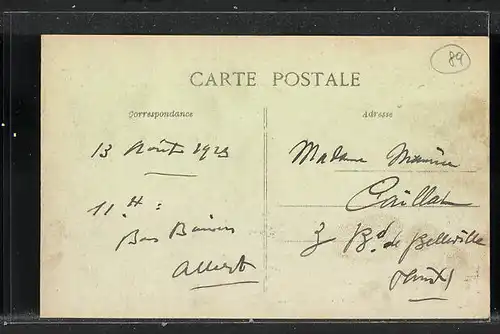 89
CARTE POSTALE
Correspondance
Adresse
13 Août 1923
11 H :
Bons Baisers
Albert
Madame Maurice
Caillat
3 Bd. de Belleville